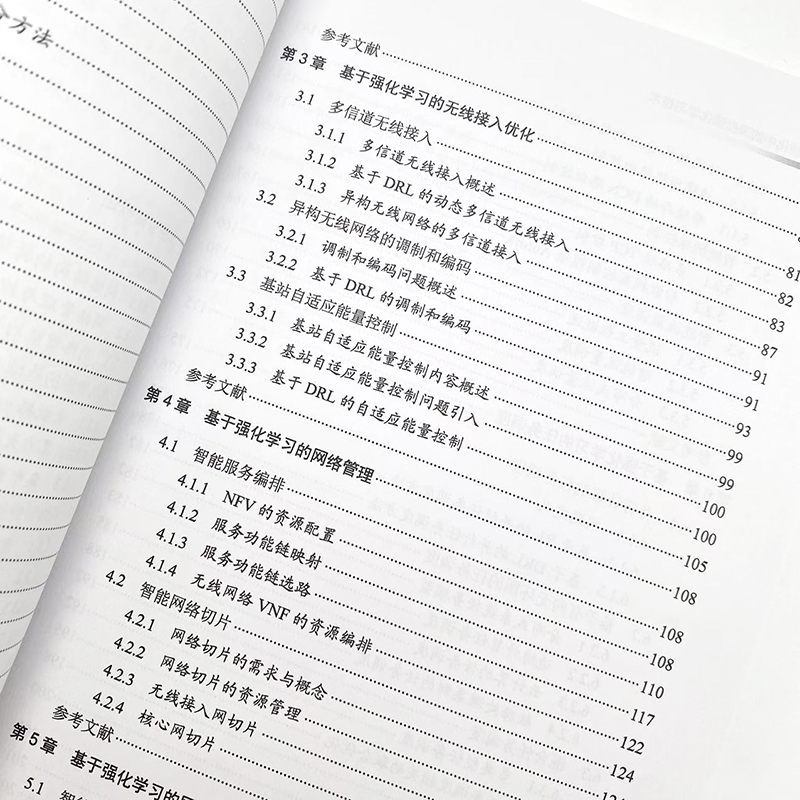 合方法
参考文献
第3章 基于强化学习的无线接入优化
3.1 多信道无线接入 81
3.1.1 多信道无线接入概述 82
3.1.2 基于 DRL 的动态多信道无线接入 83
3.1.3 异构无线网络的多信道接入 87
3.2 异构无线网络的调制和编码 91
3.2.1 调制和编码问题概述 91
3.2.2 基于 DRL 的调制和编码 93
3.3 基站自适应能量控制 99
3.3.1 基站自适应能量控制内容概述 99
3.3.2 基站自适应能量控制问题引入 100
3.3.3 基于 DRL 的自适应能量控制 100
参考文献 105
第4章 基于强化学习的网络管理 108
4.1 智能服务编排 108
4.1.1 NFV 的资源配置 108
4.1.2 服务功能链映射 110
4.1.3 服务功能链选路 117
4.1.4 无线网络 VNF 的资源编排 122
4.2 智能网络切片 124
4.2.1 网络切片的需求与概念
4.2.2 网络切片的资源管理
4.2.3 无线接入网切片
4.2.4 核心网切片
参考文献
第5章 基于强化学习的
5.1 智能